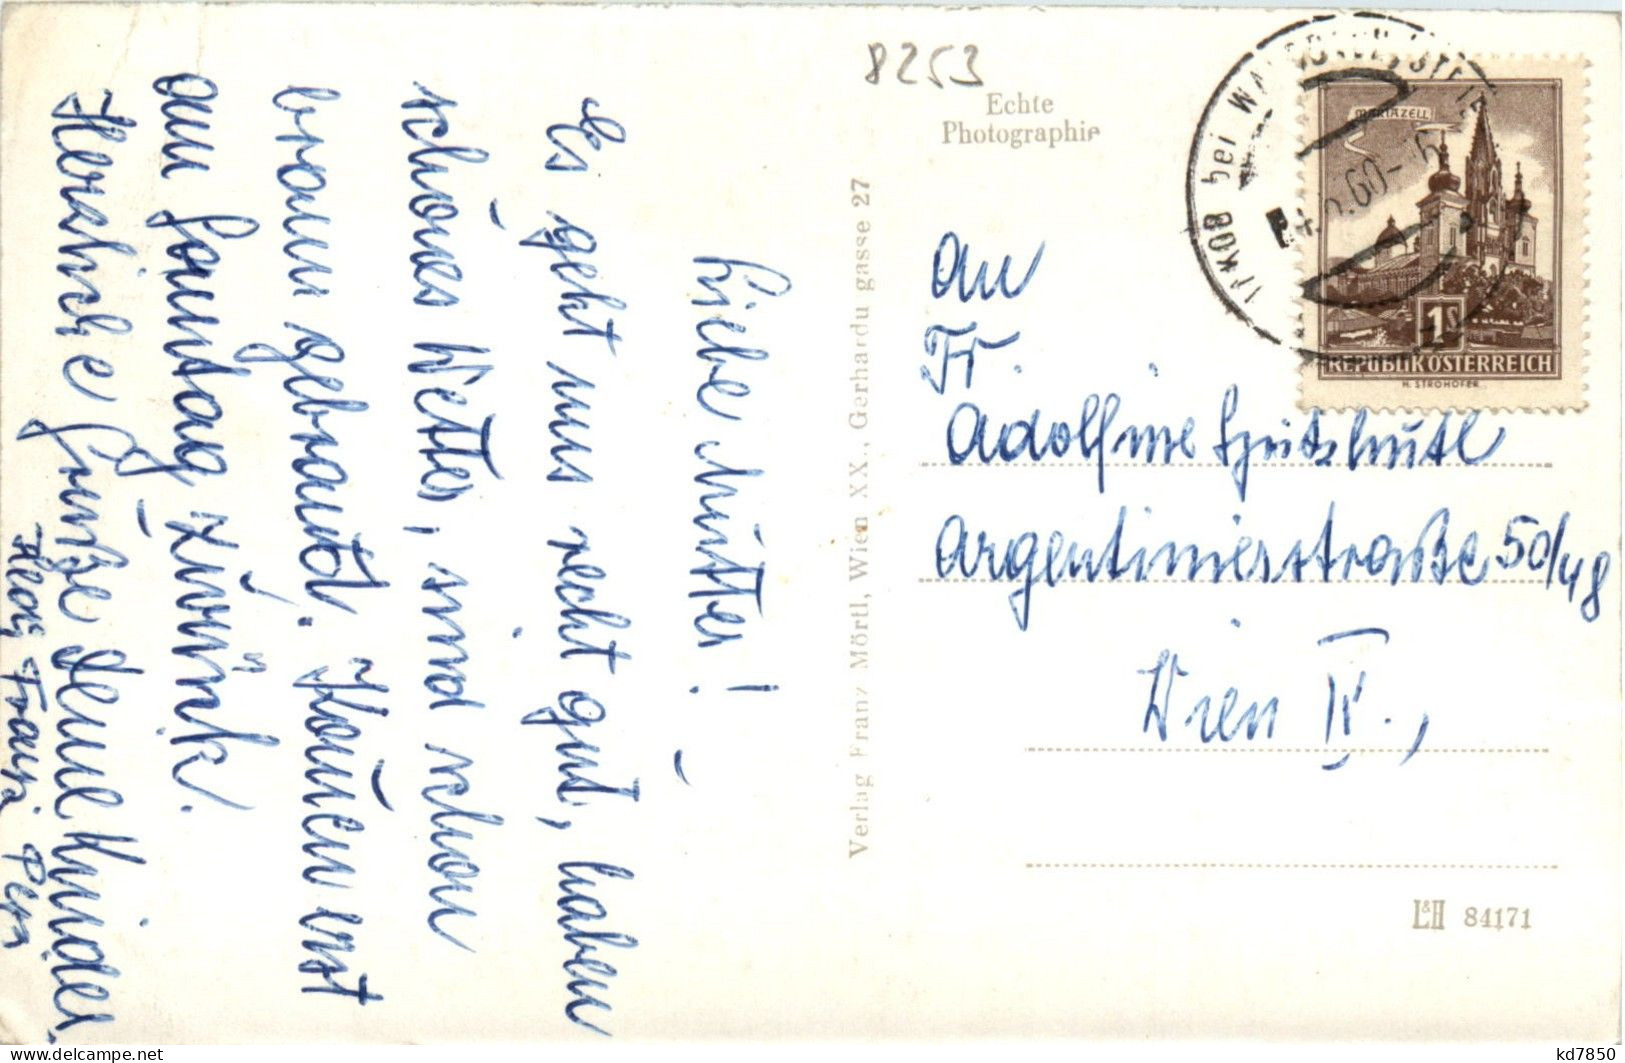 8253
Echte
Photographie
MARIAZELL
1S
REPUBLIK ÖSTERREICH
H. STROHOFER
bei
.60-16
Liebe Mutter!
Es geht uns recht gut, haben
schönes Wetter, sind schon
braun gebrannt. Kommen erst
am Sonntag zurück.
Herzliche Grüße Deine Kinder.
Franzi
Verlag Franz Mörtl, Wien XX., Gerhardu gasse 27
An
Fr.
Adolfine
Argentinierstraße 50/48
Wien IV.,
L&H 84171
kd7850